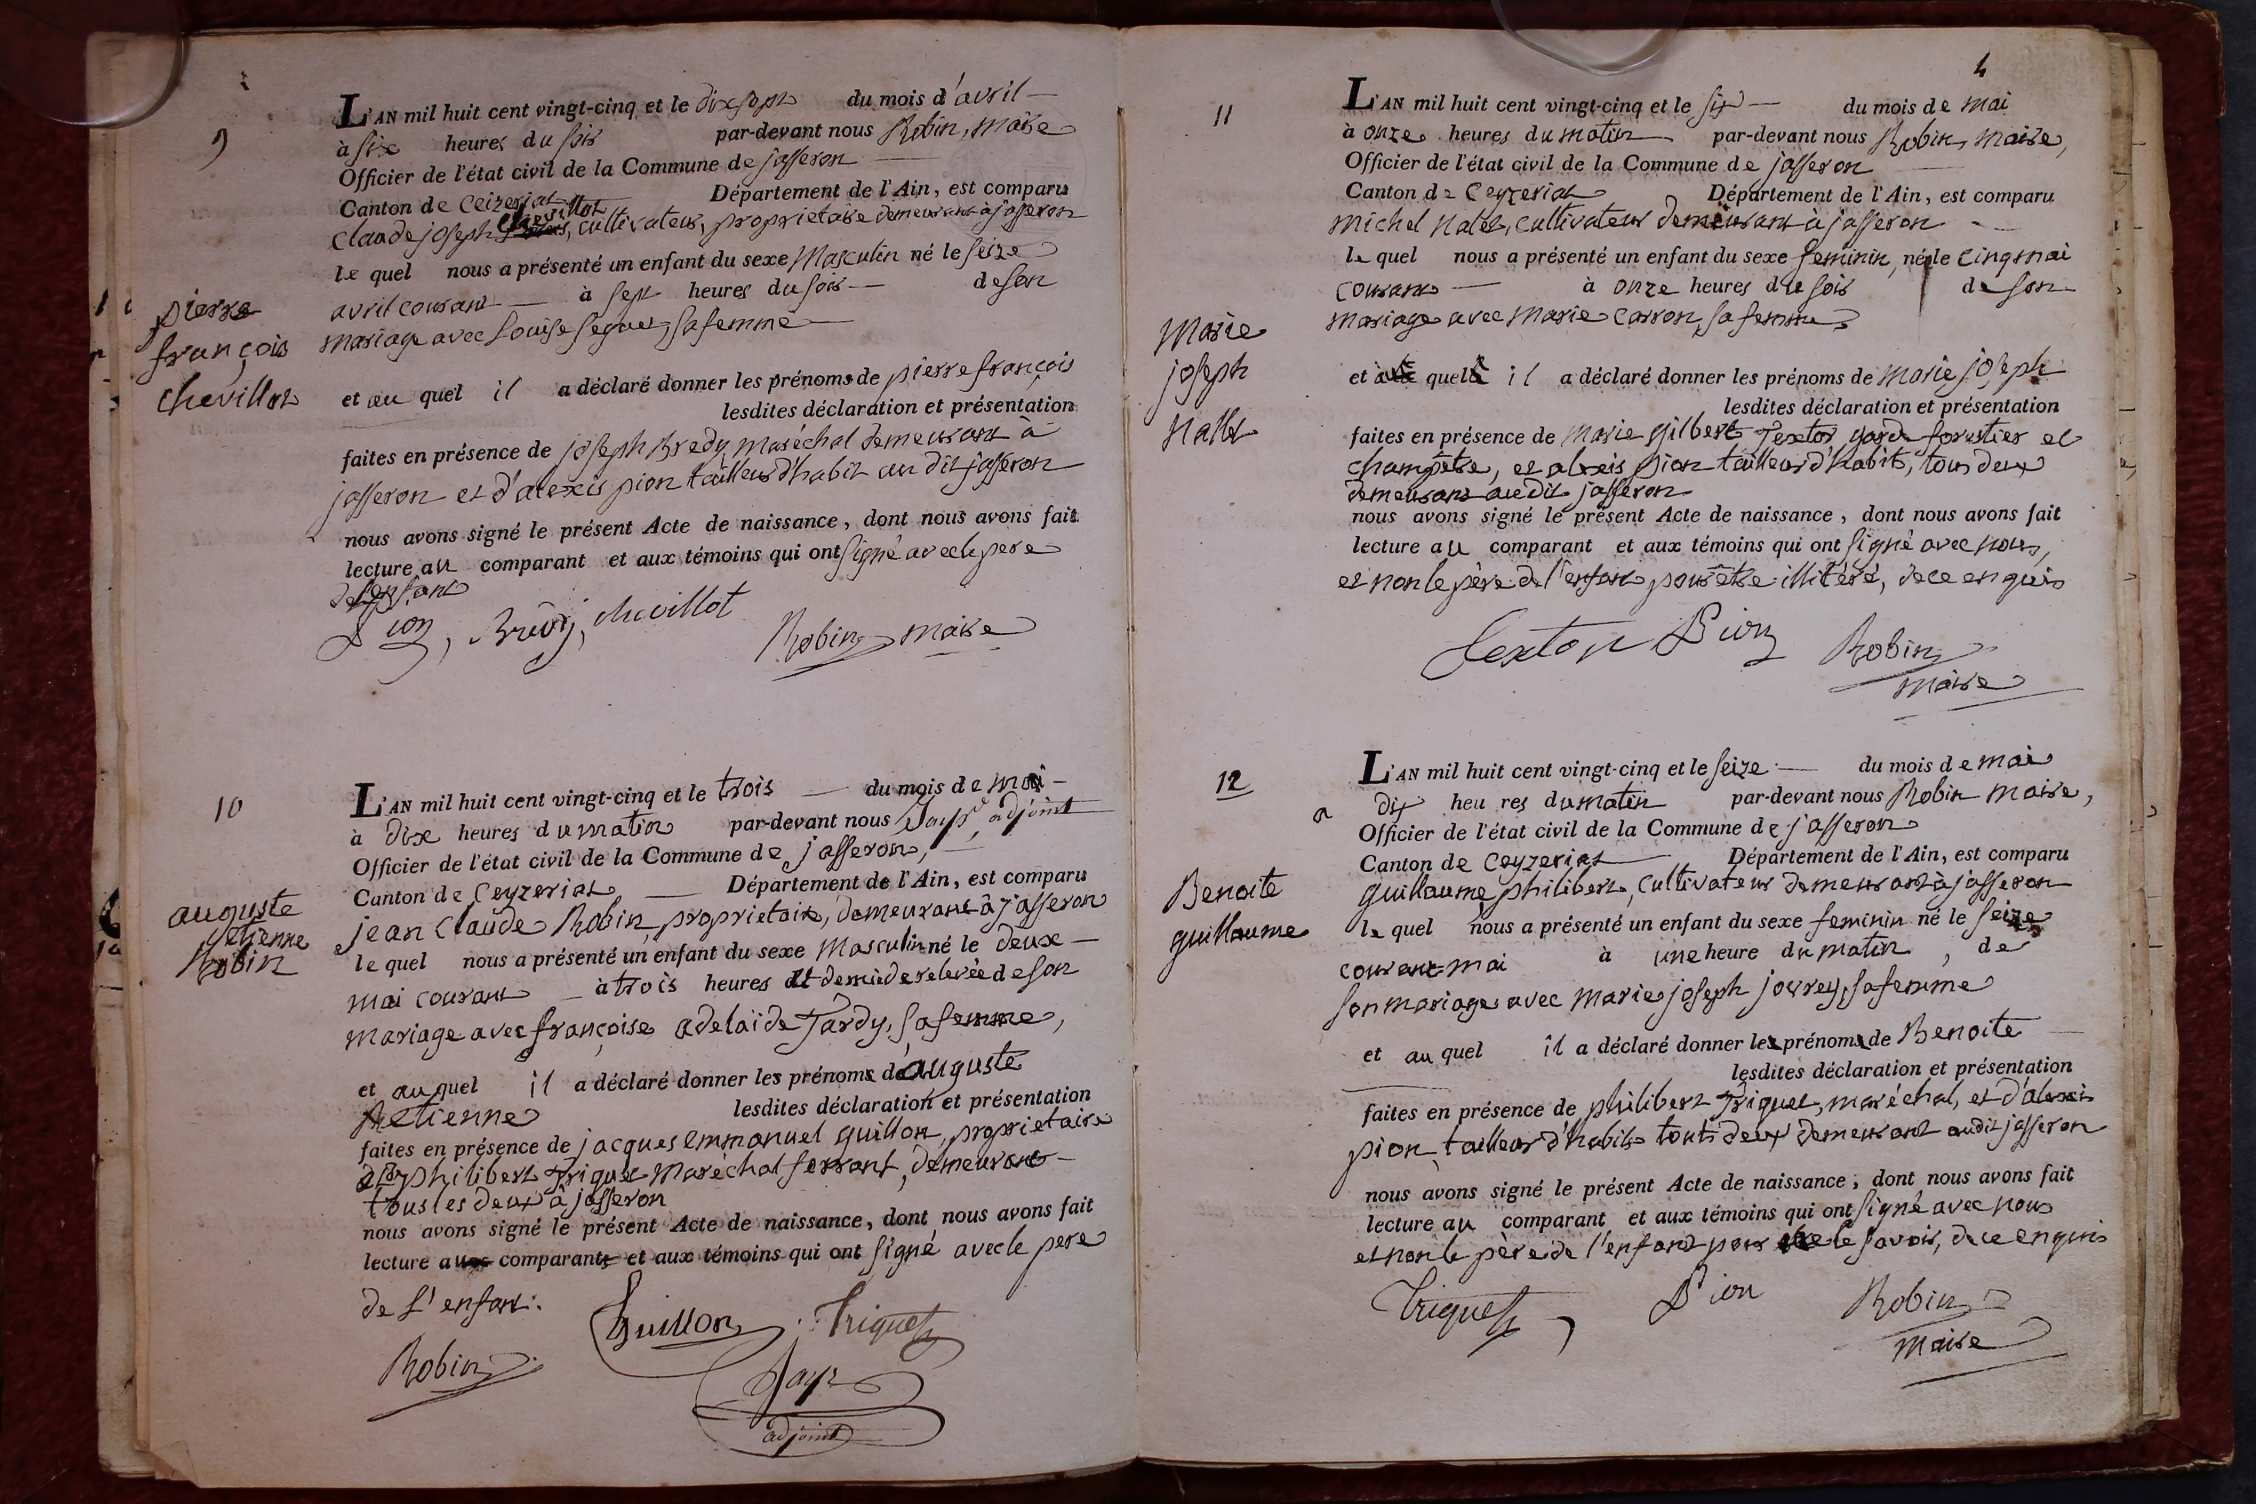 9
pierre
françois
chevillot
L'AN mil huit cent vingt-cinq et le dix sept du mois d'avril
à six heures du soir par-devant nous Robin, maire
Officier de l'état civil de la Commune de jasseron
Canton de Ceizeriat Département de l'Ain, est comparu
claude joseph chevillot, cultivateur, proprietaire demeurant à jasseron
le quel nous a présenté un enfant du sexe Masculin né le seize
avril courant à sept heures du soir de son
mariage avec Louise seguet, sa femme
et au quel il a déclaré donner les prénoms de pierre françois
lesdites déclaration et présentation
faites en présence de joseph Bredy, maréchal demeurant à
jasseron et d'alexis pion tailleur d'habit au dit jasseron
nous avons signé le présent Acte de naissance, dont nous avons fait
lecture au comparant et aux témoins qui ont signé avec le pere
de l'enfant
Pion, Brédy, chevillot
Robin maire
10
auguste
etienne
Robin
L'AN mil huit cent vingt-cinq et le trois du mois de mai
à dix heures du matin par-devant nous adjoint
Officier de l'état civil de la Commune de jasseron,
Canton de Ceyzeriat Département de l'Ain, est comparu
jean Claude Robin, proprietaire, demeurant à jasseron
le quel nous a présenté un enfant du sexe Masculin né le deux
mai courant à trois heures et demie de relevée de son
mariage avec françoise adelaïde Tardy, sa femme,
et au quel il a déclaré donner les prénoms d'auguste
Aetienne lesdites déclaration et présentation
faites en présence de jacques emmanuel guillon, proprietaire
et philibert Triquet Maréchal ferrant, demeurant
tous les deux à jasseron
nous avons signé le présent Acte de naissance, dont nous avons fait
lecture aux comparants et aux témoins qui ont signé avec le pere
de l'enfant.
Guillon Triquet
Robin
adjoint
4
11
Marie
joseph
Nallet
L'AN mil huit cent vingt-cinq et le six du mois de mai
à onze heures du matin par-devant nous Robin, maire,
Officier de l'état civil de la Commune de jasseron
Canton de Ceyzeriat Département de l'Ain, est comparu
Michel Nallet, cultivateur demeurant à jasseron
le quel nous a présenté un enfant du sexe feminin, né le cinq mai
courant à onze heures du soir de son
mariage avec Marie Carron, sa femme
et à quel il a déclaré donner les prénoms de Marie joseph
lesdites déclaration et présentation
faites en présence de Marie gilbert Textor, garde forestier et
champêtre, et alexis pion tailleur d'habits, tous deux
demeurant audit jasseron
nous avons signé le présent Acte de naissance, dont nous avons fait
lecture au comparant et aux témoins qui ont signé avec nous,
et non le père de l'enfant pour être illitéré, de ce enquis
Textor Pion Robin
maire
12
Benoite
guillaume
L'AN mil huit cent vingt-cinq et le seize du mois de mai
a dix heures du matin par-devant nous Robin maire,
Officier de l'état civil de la Commune de jasseron
Canton de Ceyzeriat Département de l'Ain, est comparu
guillaume philibert, cultivateur demeurant à jasseron
le quel nous a présenté un enfant du sexe feminin né le seize
courant mai à une heure du matin, de
son mariage avec Marie joseph jourey, sa femme
et au quel il a déclaré donner les prénoms de Benoite
lesdites déclaration et présentation
faites en présence de philibert Triquet, maréchal, et d'alexis
pion, tailleur d'habits touts deux demeurant audit jasseron
nous avons signé le présent Acte de naissance, dont nous avons fait
lecture au comparant et aux témoins qui ont signé avec nous
et non le père de l'enfant pour ne le savoir, de ce enquis
Triquet Pion Robin
maire